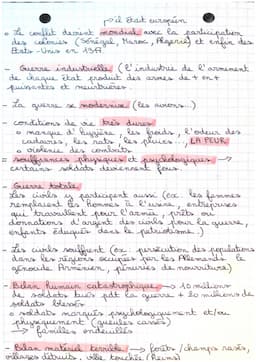 ↱ il était européen
o Le conflit devient mondial avec la participation
des colonies (Sénégal, Maroc, Algérie) et enfin des
États-Unis en 1917
- Guerre industrielle (l'industrie de l'armement
de chaque état produit des armes de + en +
puissantes et meurtrières.
- La guerre se modernise (les avions...)
- conditions de vie très dures
o manque d'hygiène, les froids, l'odeur des
cadavres, les rats, les puces..., LA PEUR
o violence des combats
= souffrances physiques et psychologiques →
certains soldats deviennent fous.
- Guerre totale
Les civils y participent aussi (ex. les femmes
remplacent les hommes à l'usine, entreprises
qui travaillent pour l'armée, prêts ou
donnations d'argent des civils pour la guerre,
enfants éduqués dans le patriotisme..)
- Les civils souffrent (ex. persécution des populations
dans les régions occupées par les Allemands, le
génocide Arménien, pénuries de nourriture)
- Bilan humain catastrophique → 10 millions
de soldats tués pdt la guerre + 20 millions de
soldats blessés
o soldats marqués psychologiquement et/ou
physiquement (gueules cassés)
→ familles endeuillés
- Bilan matériel terrible → forêts / champs rasés,
villages détruits, ville touchée (Reims)